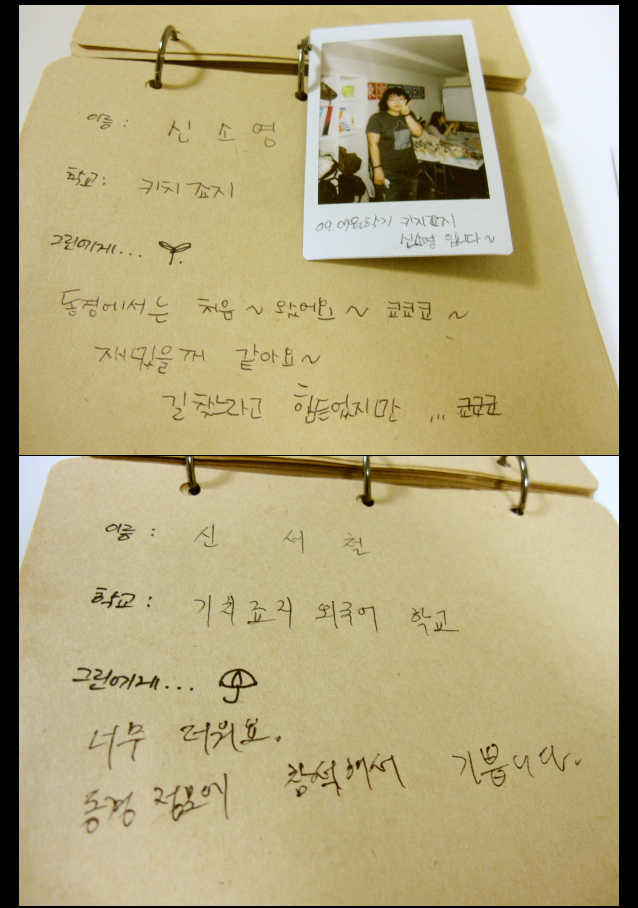 이름 : 신 소 영
학교: 키치죠지
09. 여름학기 키치죠지
신소영 입니다~
그린에게...
동경에서는 처음~ 왔어요~ 쿄쿄쿄~
재밌을꺼 같아요~
길 찾느라고 힘든었지만 ... 쿄쿄쿄
이름 : 신 서 철
학교 : 기치죠지 외국어 학교
그린에게...
너무 더워요.
동경 점모에 참석해서 기쁩니다.